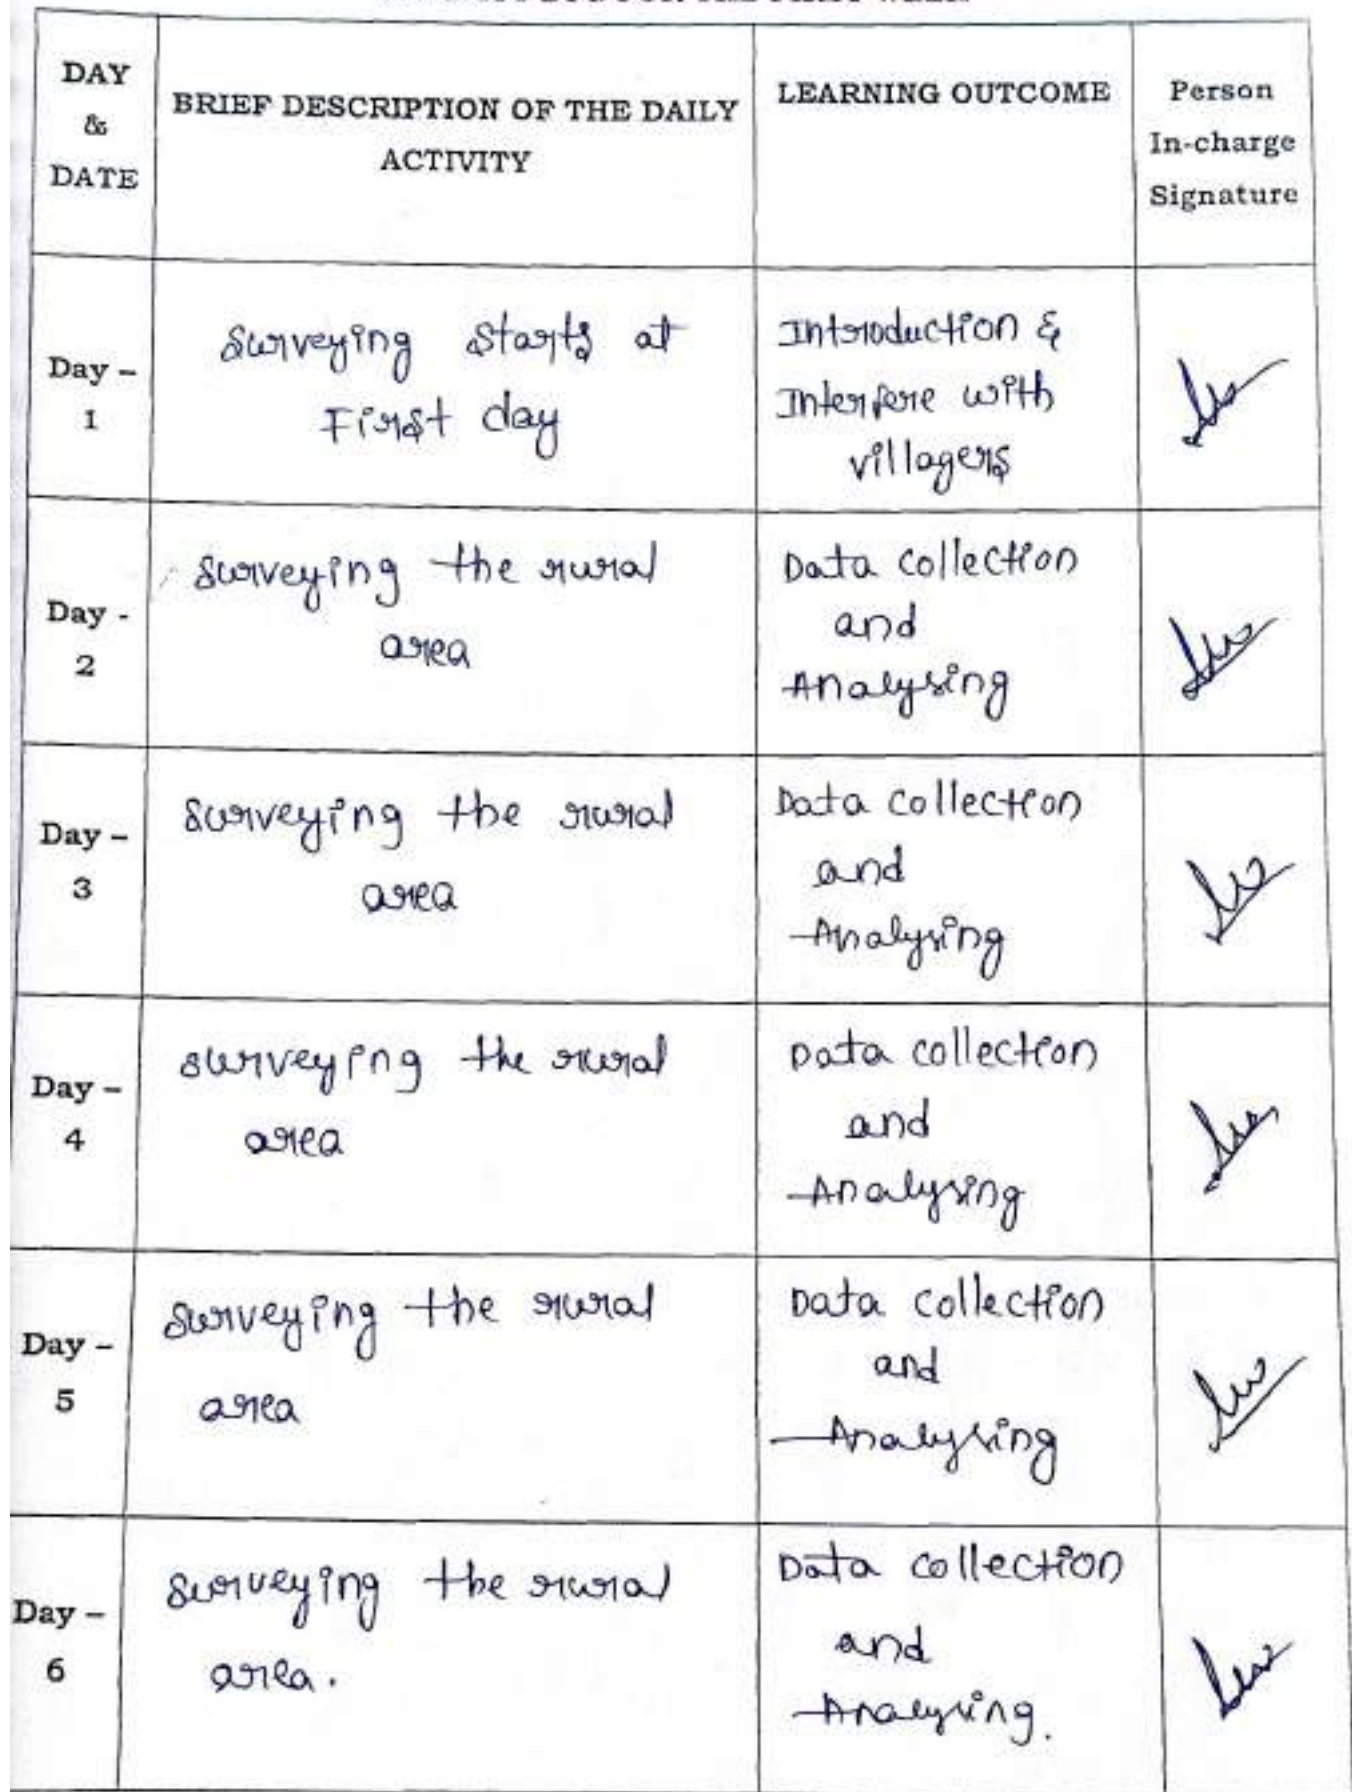 DAY
&
DATE
BRIEF DESCRIPTION OF THE DAILY
ACTIVITY
LEARNING OUTCOME
Person
In-charge
Signature
Day –
1
Surveying starts at
First day
Introduction &
Interfere with
villagers
Day -
2
Surveying the rural
area
Data collection
and
Analysing
Day –
3
Surveying the rural
area
Data collection
and
Analysing
Day –
4
surveying the rural
area
Data collection
and
Analysing
Day –
5
Surveying the rural
area
Data collection
and
Analysing
Day –
6
Surveying the rural
area.
Data collection
and
Analysing.